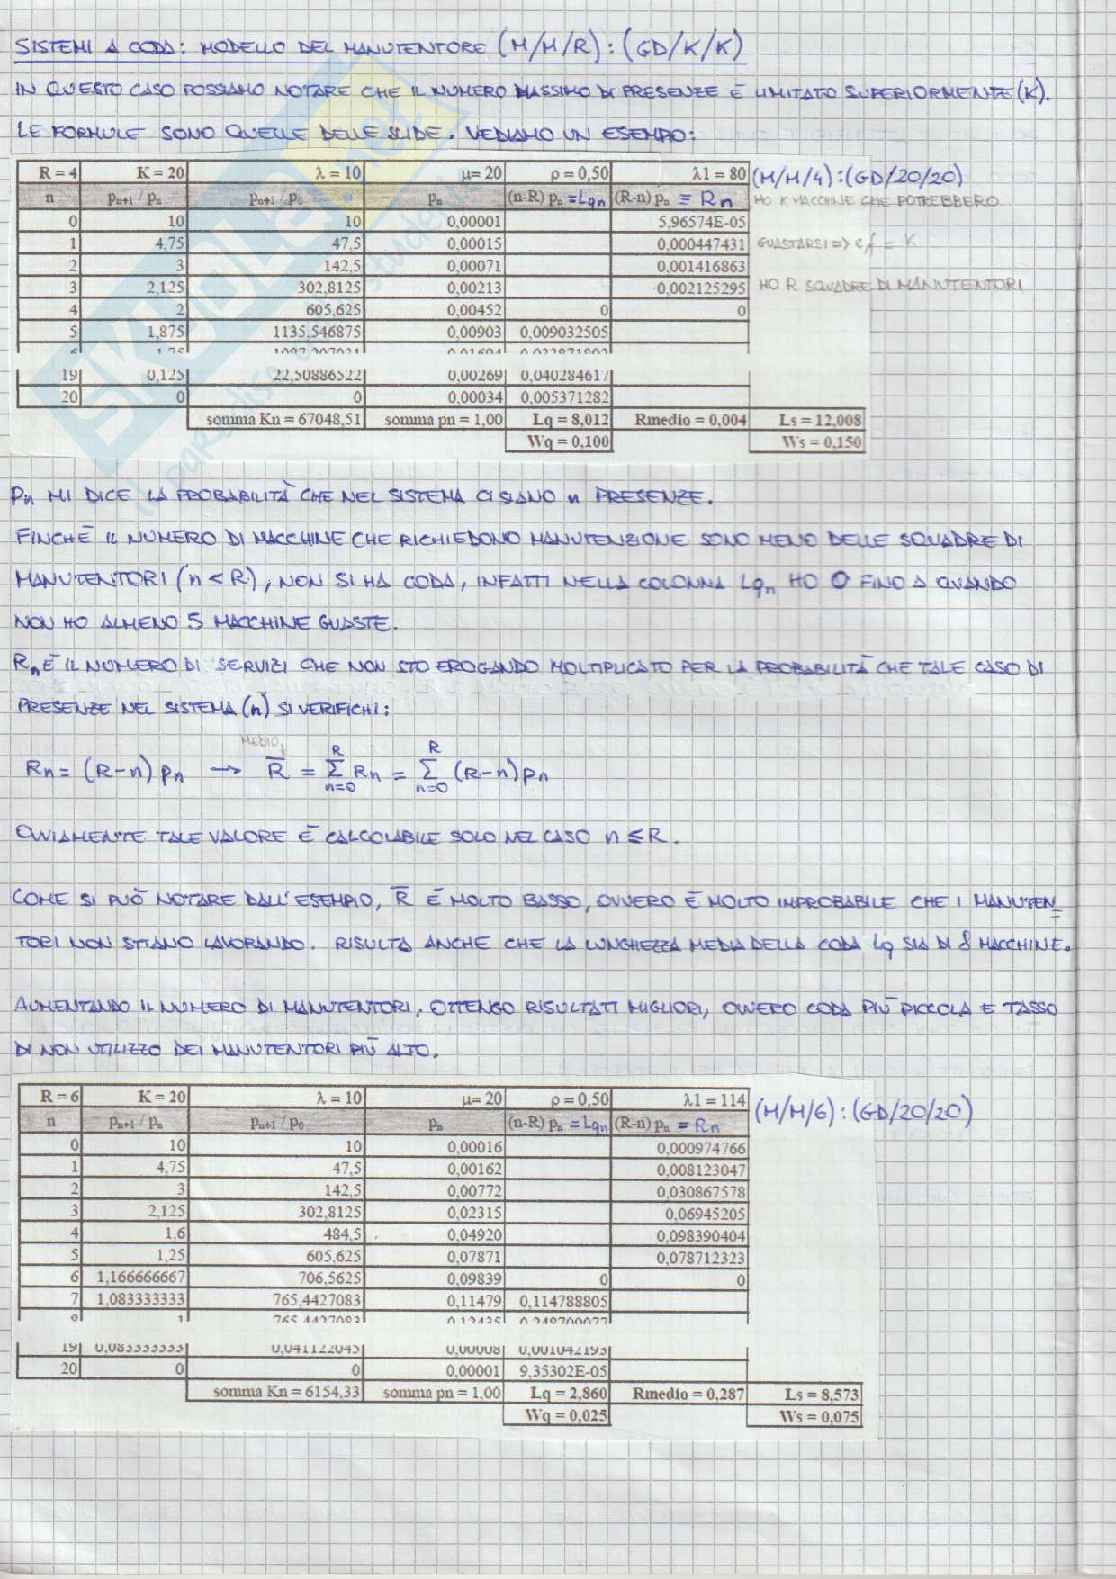 SISTEMI A CODA: MODELLO DEL MANUTENTORE (M/M/R):(GD/K/K)
IN QUESTO CASO POSSIAMO NOTARE CHE IL NUMERO MASSIMO DI PRESENZE È LIMITATO SUPERIORMENTE (K).
LE FORMULE SONO QUELLE DELLE SLIDE. VEDIAMO UN ESEMPIO:
R = 4 K = 20 λ = 10 μ= 20 ρ = 0,50 λ1 = 80 (M/M/4):(GD/20/20)
n pn+1 / pn pn+1 / p0 pn (n-R) pn =Lqn (R-n) pn = Rn HO K MACCHINE CHE POTREBBERO
0 10 10 0,00001 5,96574E-05
1 4,75 47,5 0,00015 0,000447431 GUASTARSI => cf = K
2 3 142,5 0,00071 0,001416863
3 2,125 302,8125 0,00213 0,002125295 HO R SQUADRE DI MANUTENTORI
4 2 605,625 0,00452 0 0
5 1,875 1135,546875 0,00903 0,009032505
19 0,125 22,50886522 0,00269 0,040284617
20 0 0 0,00034 0,005371282
somma Kn = 67048,51 somma pn = 1,00 Lq = 8,012 Rmedio = 0,004 Ls = 12,008
Wq = 0,100 Ws = 0,150
Pn MI DICE LA PROBABILITÀ CHE NEL SISTEMA CI SIANO n PRESENZE.
FINCHÈ IL NUMERO DI MACCHINE CHE RICHIEDONO MANUTENZIONE SONO MENO DELLE SQUADRE DI
MANUTENTORI (n < R), NON SI HA CODA, INFATTI NELLA COLONNA Lqn HO 0 FINO A QUANDO
NON HO ALMENO 5 MACCHINE GUASTE.
Rn È IL NUMERO DI SERVIZI CHE NON STO EROGANDO MOLTIPLICATO PER LA PROBABILITÀ CHE TALE CASO DI
PRESENZE NEL SISTEMA (n) SI VERIFICHI:
MEDIO
Rn = (R-n) pn → R̄ = Σ(n=0, R) Rn = Σ(n=0, R) (R-n) pn
OVVIAMENTE TALE VALORE È CALCOLABILE SOLO NEL CASO n ≤ R.
COME SI PUÒ NOTARE DALL'ESEMPIO, R̄ È MOLTO BASSO, OVVERO È MOLTO IMPROBABILE CHE I MANUTEN-
TORI NON STIANO LAVORANDO. RISULTA ANCHE CHE LA LUNGHEZZA MEDIA DELLA CODA Lq SIA DI 8 MACCHINE.
AUMENTANDO IL NUMERO DI MANUTENTORI, OTTENGO RISULTATI MIGLIORI, OVVERO CODA PIÙ PICCOLA E TASSO
DI NON UTILIZZO DEI MANUTENTORI PIÙ ALTO.
R = 6 K = 20 λ = 10 μ= 20 ρ = 0,50 λ1 = 114 (M/M/6):(GD/20/20)
n pn+1 / pn pn+1 / p0 pn (n-R) pn =Lqn (R-n) pn = Rn
0 10 10 0,00016 0,000974766
1 4,75 47,5 0,00162 0,008123047
2 3 142,5 0,00772 0,030867578
3 2,125 302,8125 0,02315 0,06945205
4 1,6 484,5 0,04920 0,098390404
5 1,25 605,625 0,07871 0,078712323
6 1,166666667 706,5625 0,09839 0 0
7 1,083333333 765,4427083 0,11479 0,114788805
19 0,083333333 0,041122045 0,00008 0,001042193
20 0 0 0,00001 9,35302E-05
somma Kn = 6154,33 somma pn = 1,00 Lq = 2,860 Rmedio = 0,287 Ls = 8,573
Wq = 0,025 Ws = 0,075